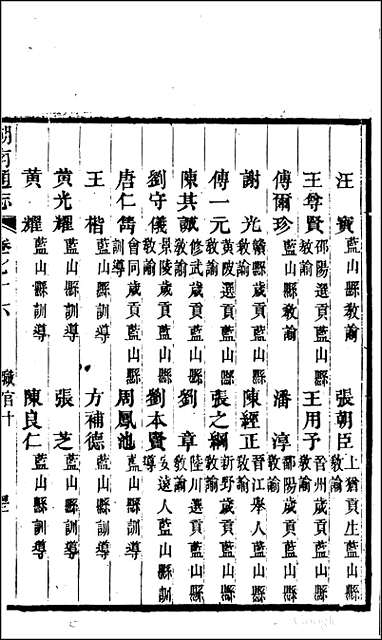 汪寶 藍山縣教諭 張朝臣 上猶貢生藍山縣教諭
王尊賢 邵陽選貢藍山縣教諭 王用予 晉州歲貢藍山縣教諭
傅爾珍 藍山縣教諭 潘淳 鄱陽歲貢藍山縣教諭
謝光 贛縣歲貢藍山縣教諭 陳經正 晉江舉人藍山縣教諭
傅一元 黃陂選貢藍山縣教諭 張之綱 新野歲貢藍山縣教諭
陳其謨 修武歲貢藍山縣教諭 劉章 陸川選貢藍山縣教諭
劉守儀 景陵歲貢藍山縣教諭 劉本賢 遠人藍山縣訓導
唐仁雋 會同歲貢藍山縣訓導 周鳳池 藍山縣訓導
王楷 藍山縣訓導 方補德 藍山縣訓導
黃光耀 藍山縣訓導 張芝 藍山縣訓導
黃耀 藍山縣訓導 陳良仁 藍山縣訓導
湖南通志 卷 十六 職官十